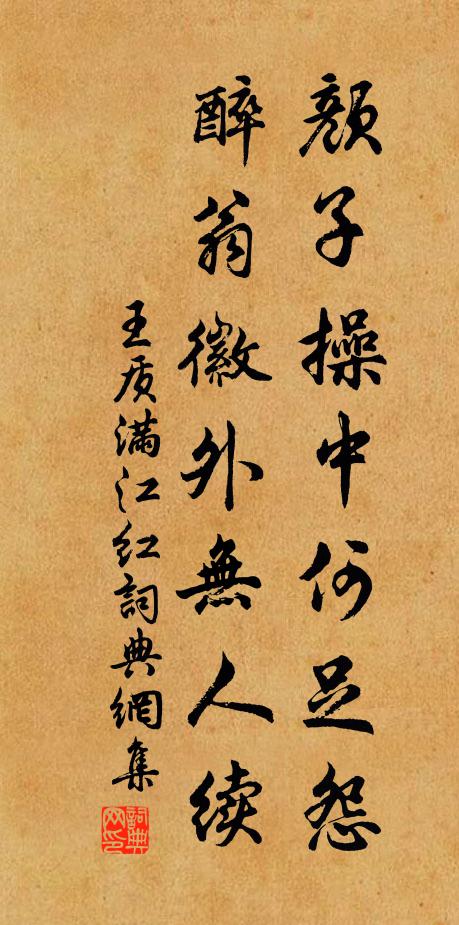 颜子操中何足怨
醉翁徽外無人续
王质满江红詞典網集
詞典网印